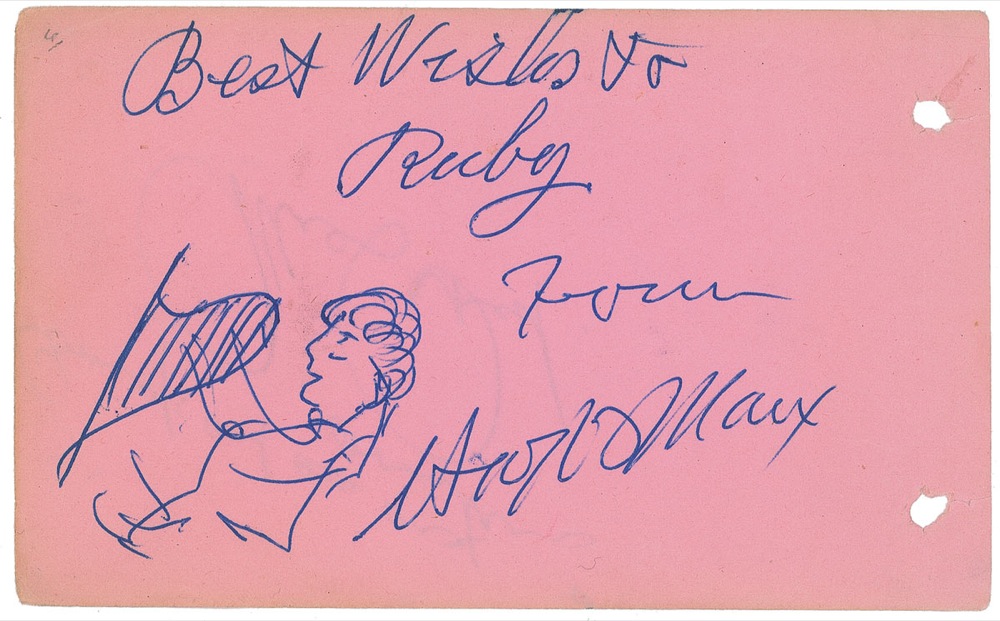 Best Wishes to
Ruby
From
Harpo Marx